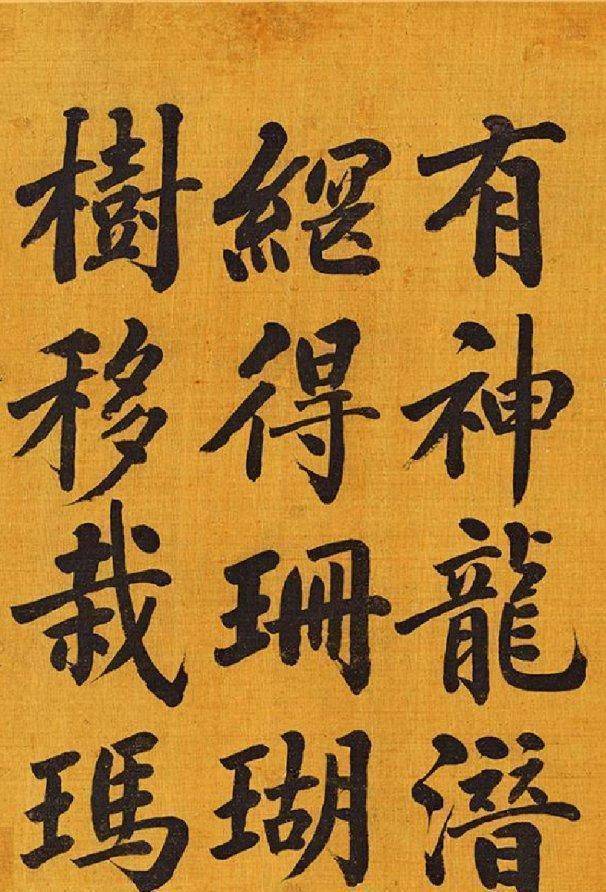 有神龍潛
網得珊瑚
樹移栽瑪